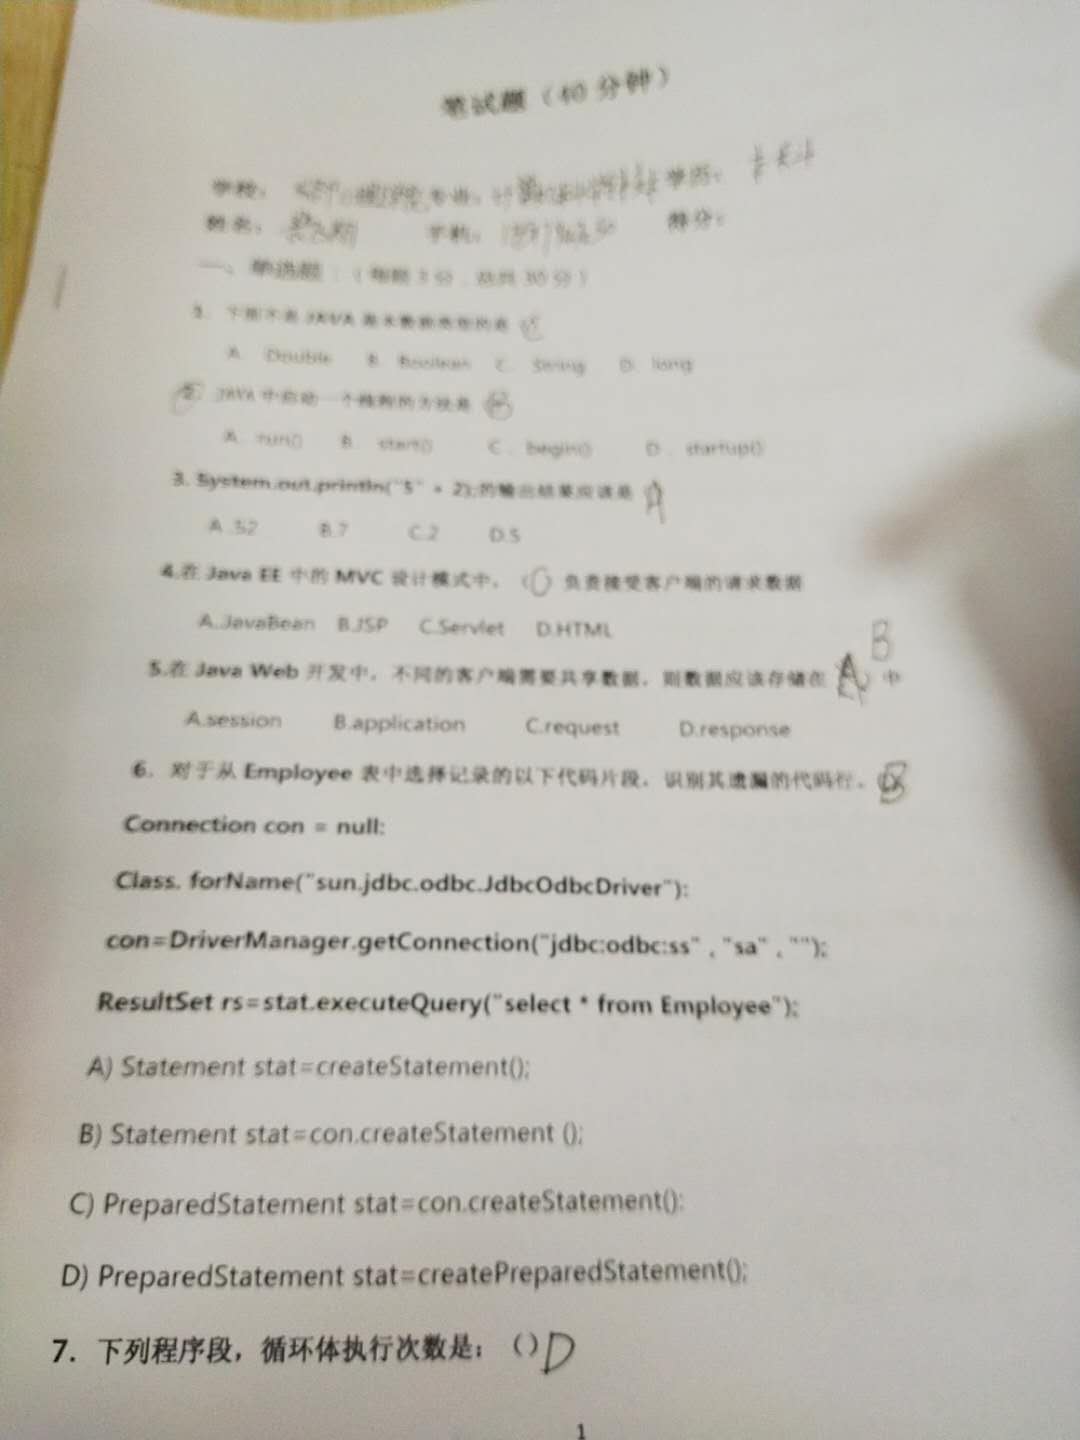 笔试题（40 分钟）
学校： 专业： 学历：
姓名： 手机： 得分：
一、单选题：（每题 3 分，总共 30 分）
1. 下面不是 JAVA 基本数据类型的是 C
A. Double B. Boolean C. String D. long
2. JAVA 中启动一个线程的方法是 B
A. run() B. start() C. begin() D. startup()
3. System.out.println("5" + 2);的输出结果应该是 A
A .52 B.7 C.2 D.5
4.在 Java EE 中的 MVC 设计模式中，（C）负责接受客户端的请求数据
A.JavaBean B.JSP C.Servlet D.HTML
B
5.在 Java Web 开发中，不同的客户端需要共享数据，则数据应该存储在（A）中
A.session B.application C.request D.response
6. 对于从 Employee 表中选择记录的以下代码片段，识别其遗漏的代码行。B
Connection con = null;
Class. forName("sun.jdbc.odbc.JdbcOdbcDriver");
con=DriverManager.getConnection("jdbc:odbc:ss" , "sa" , "");
ResultSet rs=stat.executeQuery("select * from Employee");
A) Statement stat=createStatement();
B) Statement stat=con.createStatement ();
C) PreparedStatement stat=con.createStatement();
D) PreparedStatement stat=createPreparedStatement();
7. 下列程序段，循环体执行次数是：（）D
1